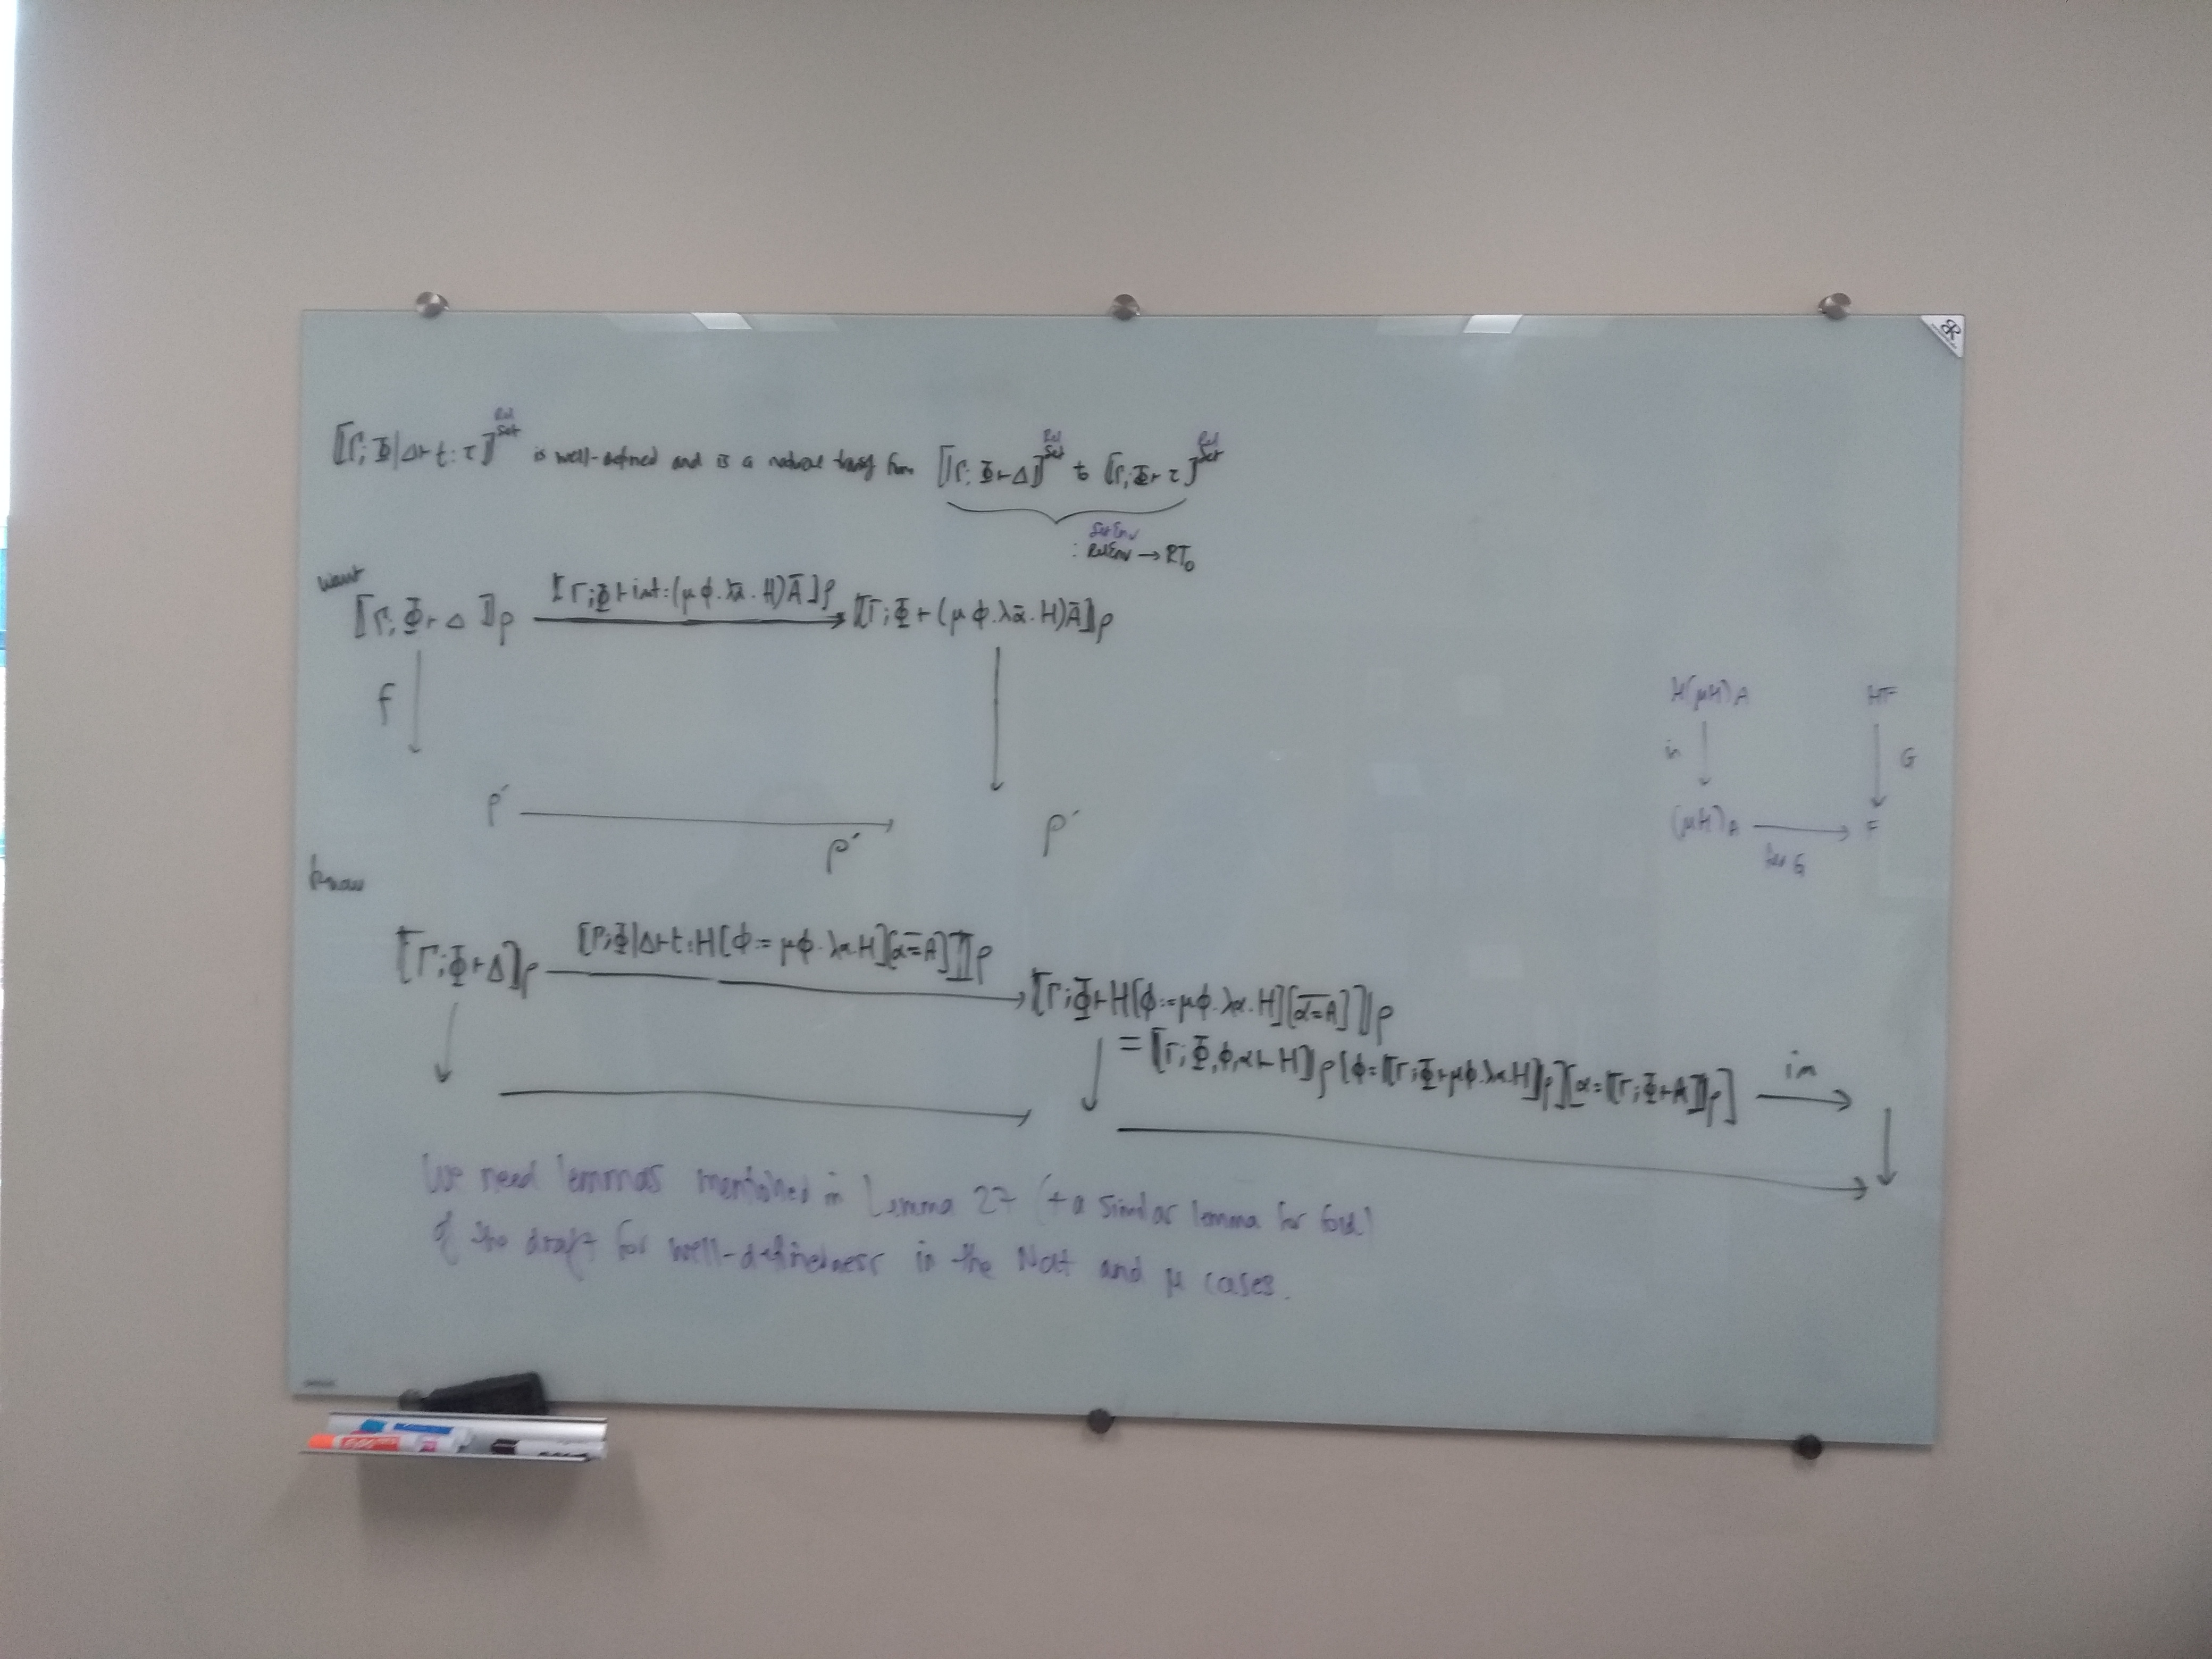 Rel
Set
⟦Γ;Φ|Δ⊢t:τ⟧ is well-defined and is a natural transf from ⟦Γ;Φ⊢Δ⟧ to ⟦Γ;Φ⊢τ⟧
Rel
Set
Rel
Set
SetEnv
: RelEnv → RT₀
want
⟦Γ;Φ⊢Δ⟧ρ
⟦Γ;Φ⊢int:(μφ.λᾱ.H)Ā⟧ρ
⟦Γ;Φ⊢(μφ.λᾱ.H)Ā⟧ρ
f
ρ′
ρ′
ρ′
H(μH)A
HF
in
G
(μH)A
F
know
⟦Γ;Φ⊢Δ⟧ρ
⟦Γ;Φ|Δ⊢t:H[φ:=μφ.λα.H][α̅=̅A̅]⟧ρ
⟦Γ;Φ⊢H[φ:=μφ.λα.H][α̅=̅A̅]⟧ρ
= ⟦Γ;Φ,φ,α⊢H⟧ρ[φ=⟦Γ;Φ⊢μφ.λα.H⟧ρ][α=⟦Γ;Φ⊢A⟧ρ]
in
We need lemmas mentioned in Lemma 27 (+ a similar lemma for fold)
of the draft for well-definedness in the Nat and μ cases.